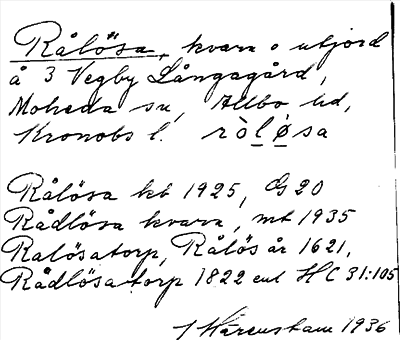 Rålösa, kvarn o utjord
å 3 Vegby Långagård,
Moheda sn, Allbo hd,
Kronobs l. ròlø̀sa
Rålösa kb 1925, G 20
Rådlösa kvarn, mt 1935
Ralösatorp, Rålös år 1621,
Rådlösatorp 1822 enl HC 31:105
J Härenstam 1936